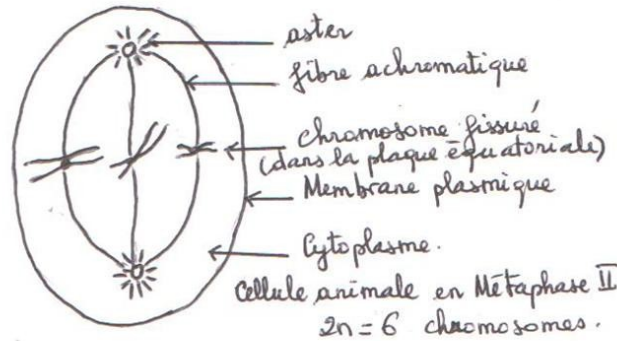 aster
fibre achromatique
chromosome fissuré
(dans la plaque équatoriale)
Membrane plasmique
Cytoplasme.
Cellule animale en Métaphase II
2n = 6 chromosomes.